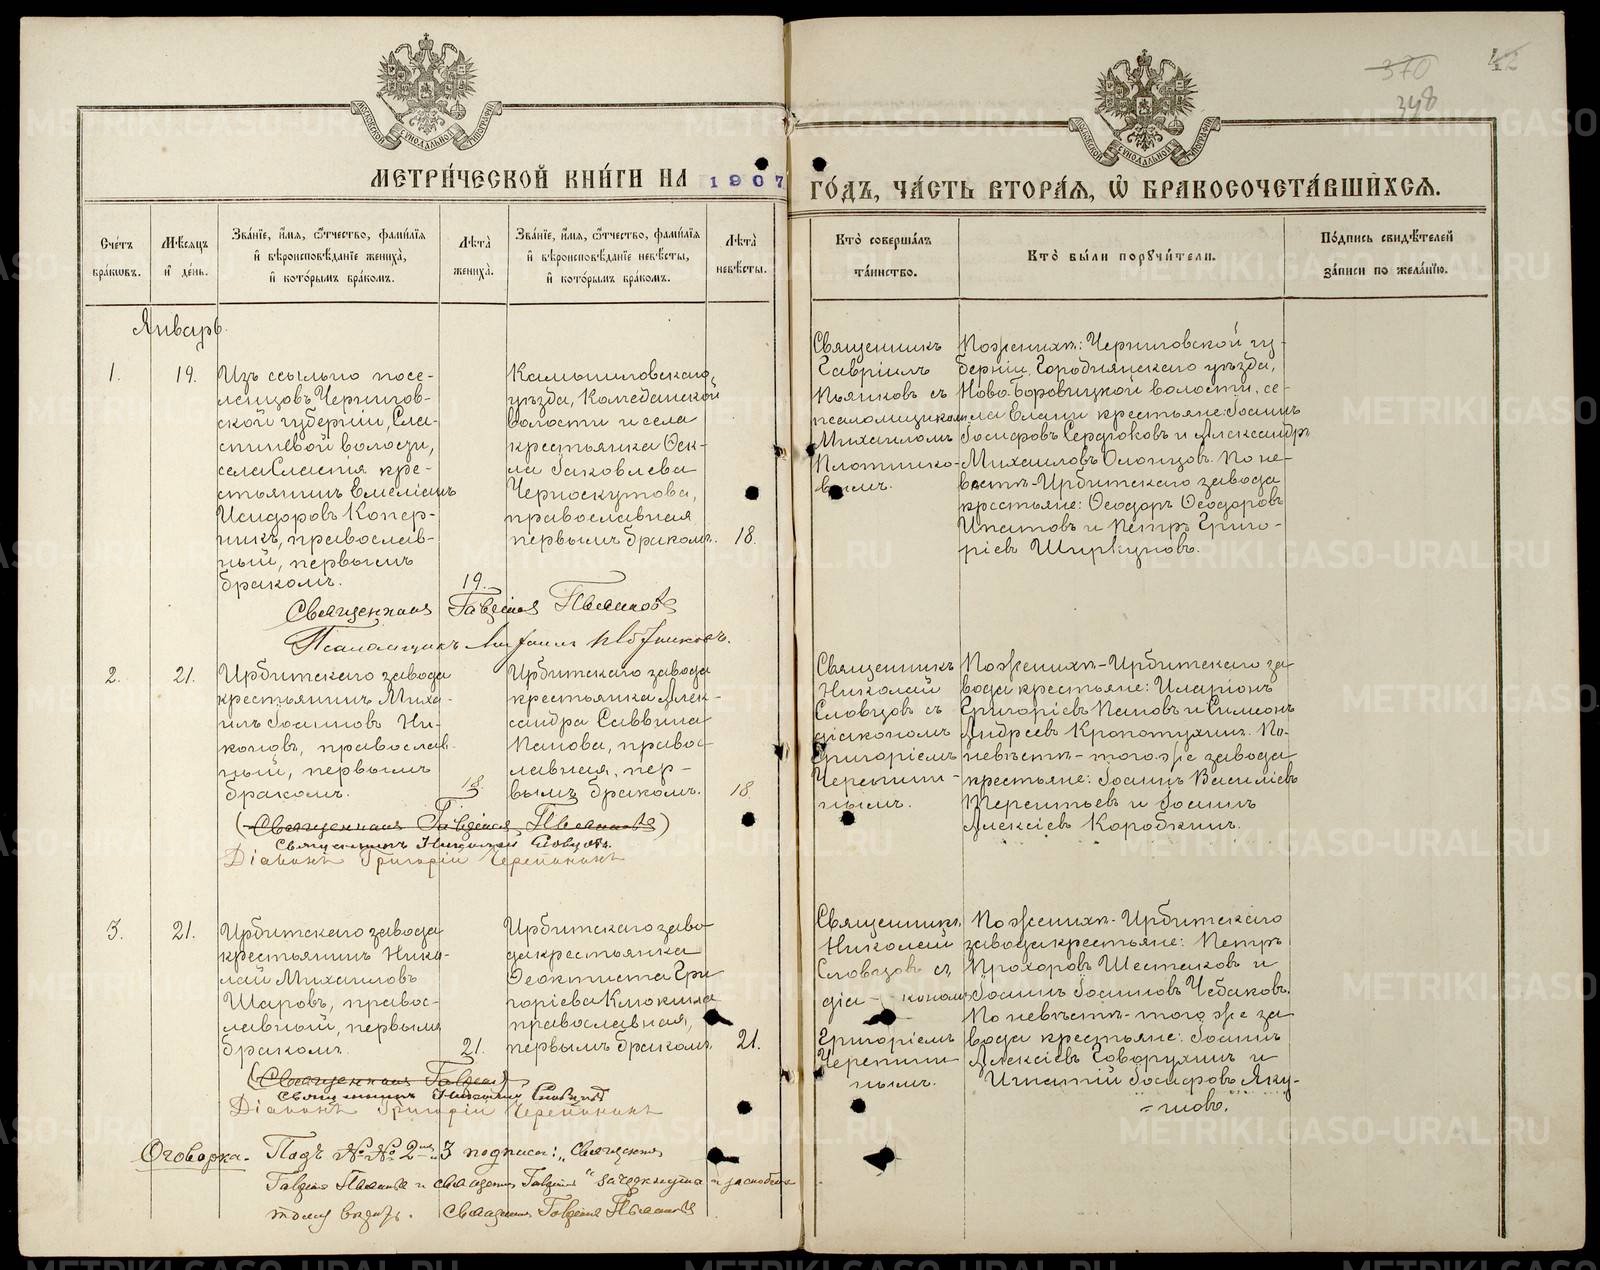 370
348
42
МЕТРИ́ЧЕСКОЙ КНИ́ГИ НА 1907 ГО́ДЪ, ЧА́СТЬ ВТОРА́Я, Ѽ БРАКОСОЧЕТА́ВШИХСЯ.
Сче́тъ бра́кѡвъ.
Мѣ́сяцъ и҆ де́нь.
Зва́нїе, и҆́мя, ѻ҆́тчество, фами́лїя и҆ вѣроисповѣ́данїе жениха̀, и҆ кото́рымъ бра́комъ.
Лѣ́та жениха̀.
Зва́нїе, и҆́мя, ѻ҆́тчество, фами́лїя и҆ вѣроисповѣ́данїе невѣ́сты, и҆ кото́рымъ бра́комъ.
Лѣ́та невѣ́сты.
Кто̀ соверша́лъ та́инство.
Кто̀ бы́ли поручи́тели.
По́дпись свидѣ́телей за́писи по жела́нїю.
Январь.
1.
19.
Изъ ссыльно посе-
ленцовъ Чернигов-
ской губерніи, Сла-
стиневой волости,
села Сластія кре-
стьянинъ Емеліанъ
Исидоровъ Копер-
никъ, православ-
ный, первымъ
бракомъ.
19.
Камышловскаго
уѣзда,
волости и села
крестьянка Ѳек-
ла Іаковлева
Черноскутова,
православная
первымъ бракомъ.
18.
Священникъ
Гавріилъ
Пьянковъ съ
псаломщикомъ
Михаиломъ
Плотнико-
вымъ.
По женихѣ: Черниговской гу-
берніи, Городнянскаго уѣзда,
Ново-Боровицкой волости, се-
ла Елани крестьяне: Іоаннъ
Іосифовъ Сердюковъ и Александръ
Михаиловъ Олонцовъ. По не-
вѣстѣ - Ирбитскаго завода
крестьяне: Ѳеодоръ Ѳеодоровъ
Ипатовъ и Петръ Григо-
ріевъ Ширкуновъ.
Священникъ Гавріилъ Пьянковъ
Псаломщикъ Михаилъ Плотниковъ.
2.
21.
Ирбитскаго завода
крестьянинъ Миха-
илъ Іоанновъ Ни-
коновъ, православ-
ный, первымъ
бракомъ.
18.
Ирбитскаго завода
крестьянка Алек-
сандра Саввина
Папова, правос-
лавная, пер-
вымъ бракомъ.
18
Священникъ
Николай
Словцовъ съ
діакономъ
Григоріемъ
Черепани-
нымъ.
По женихѣ - Ирбитскаго за-
вода крестьяне: Иларіонъ
Григоріевъ Паповъ и Симеонъ
Андреевъ Кропотухинъ. По
невѣстѣ - того же завода
крестьяне: Іоаннъ Василіевъ
Терентьевъ и Іоаннъ
Алексіевъ Коробкинъ.
(Священникъ Гавріилъ Пьянковъ)
Священникъ Николай Словцовъ.
Діаконъ Григорій Черепанинъ
3.
21.
Ирбитскаго завода
крестьянинъ Нико-
лай Михаиловъ
Шаровъ, правос-
лавный, первымъ
бракомъ.
21.
Ирбитскаго заво-
да крестьянка
Ѳеоктиста Гри-
горіева Клюкина
православная,
первымъ бракомъ.
21.
Священникъ
Николай
Словцовъ съ
діа- кономъ
Григоріемъ
Черепани-
нымъ.
По женихѣ - Ирбитскаго
завода крестьяне: Петръ
Прохоровъ Шестаковъ и
Іоаннъ Іоанновъ Чебаковъ.
По невѣстѣ - того же за-
вода крестьяне: Іоаннъ
Алексіевъ Говорухинъ и
Игнатій Іосифовъ Яку-
=новъ.
(Священникъ Гавріилъ)
Священникъ Николай Словцовъ
Діаконъ Григорій Черепанинъ
Оговорка. Подъ №№ 2 и 3 подписи: „Священникъ
Гавріилъ Пьянковъ и священникъ Гавріилъ“ зачеркнуты
тому вѣрить. Священникъ Гавріилъ Пьянковъ
METRIKI.GASO-URAL.RU